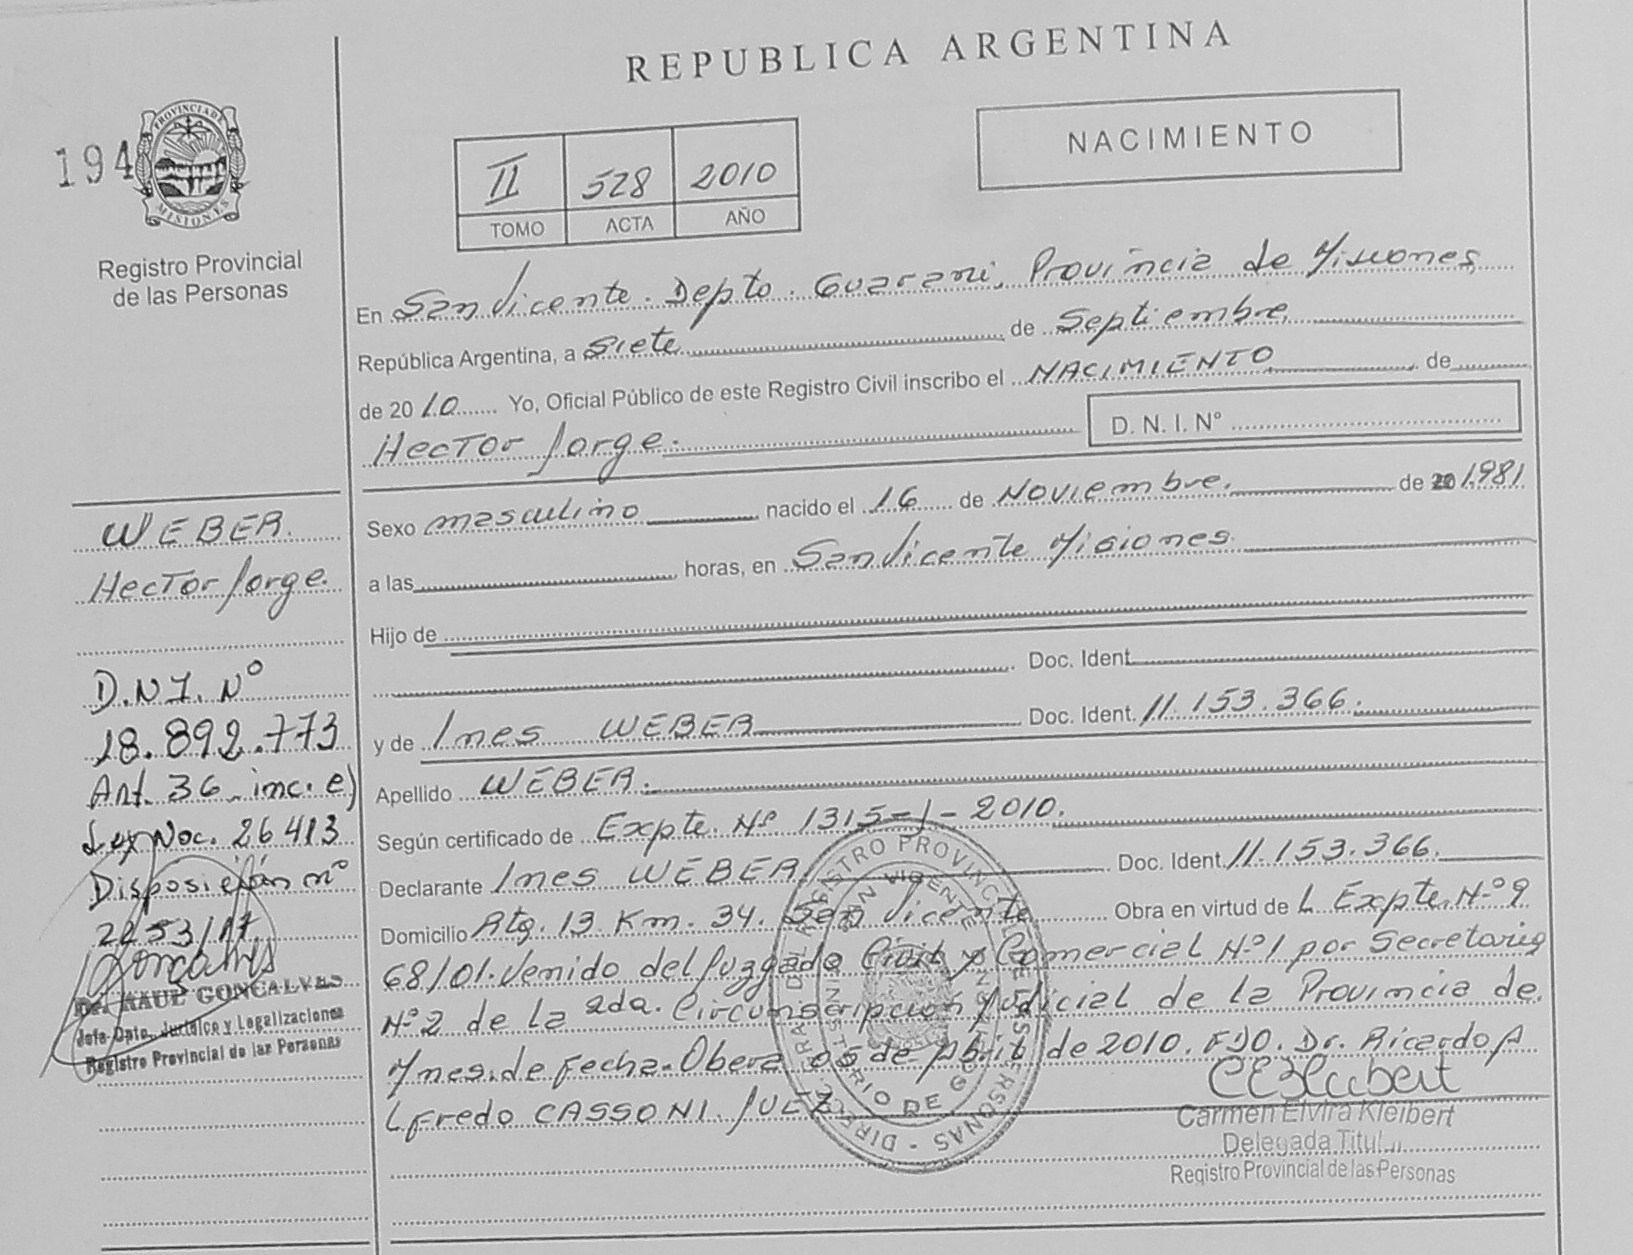 REPUBLICA ARGENTINA
194
PROVINCIA DE
MISIONES
Registro Provincial
de las Personas
II 528 2010
TOMO ACTA AÑO
NACIMIENTO
En San Vicente. Depto. Guarani, Provincia de Misiones
República Argentina, a Siete de Septiembre
de 2010 Yo, Oficial Público de este Registro Civil inscribo el NACIMIENTO de
Hector Jorge. D. N. I. Nº
Sexo masculino nacido el 16 de Noviembre. de 1981
a las horas, en San Vicente Misiones
Hijo de
Doc. Ident.
y de Ines WEBER Doc. Ident. 11.153.366.
Apellido WEBER.
Según certificado de Expte. Nº 1315-J-2010.
Declarante Ines WEBER Doc. Ident. 11.153.366.
Domicilio Rta. 13. Km. 34. San Vicente Obra en virtud de L Expte. Nº 9
68/01. Venido del Juzgado Civil y Comercial Nº1 por Secretaria
Nº2 de la 2da. Circunscripción Judicial de la Provincia de
Mnes. de Fecha. Obera 05 de Abril de 2010. FDO. Dr. Ricardo A
Lfredo CASSONI. JUEZ
Carmen Elvira Kleibert
Delegada Titul
Registro Provincial de las Personas
WEBER.
Hector Jorge.
D.N.I. Nº
18.892.773
Art. 36 inc. e)
Ley Noc. 26413
Disposición nº
2253/17
Dr. RAUL GONCALVES
Jefe Dpto. Jurídico y Legalizaciones
Registro Provincial de las Personas